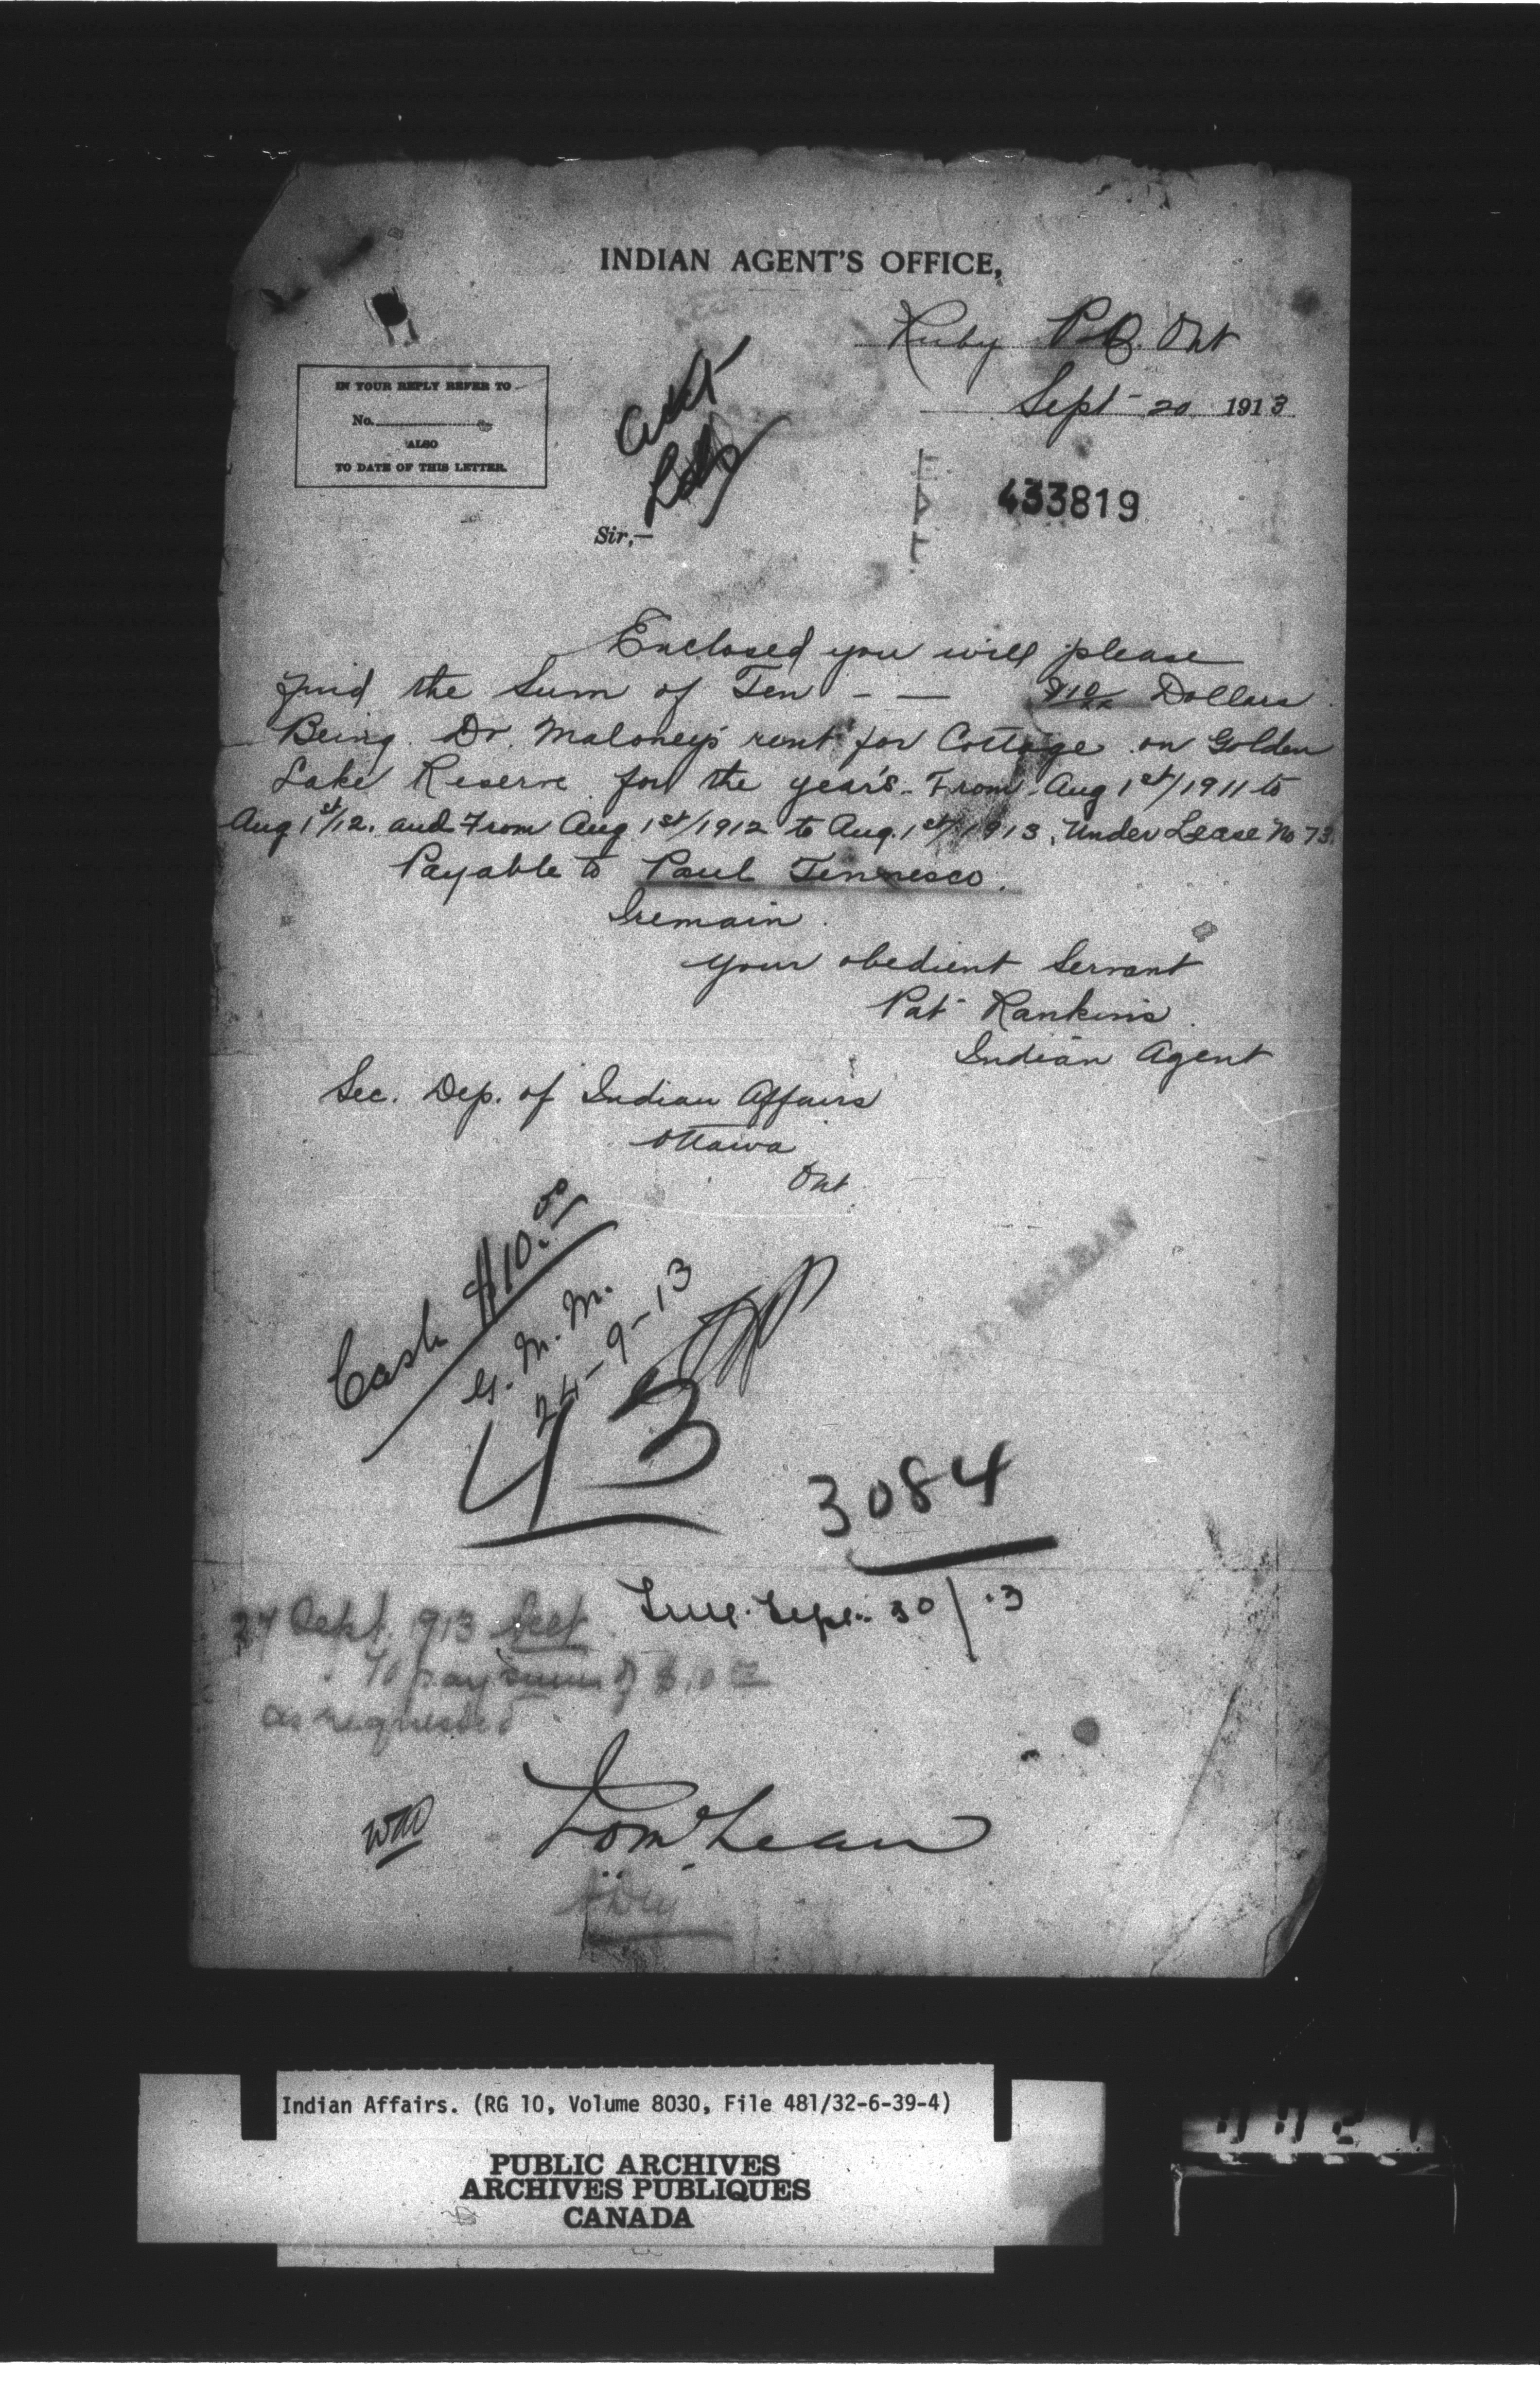 INDIAN AGENT'S OFFICE,
Ruby P.O. Ont
Sept 20 1913
IN YOUR REPLY REFER TO
No.
ALSO
TO DATE OF THIS LETTER.
433819
Sir,—
Enclosed you will please
find the Sum of Ten - — $10/xx Dollars
Being Dr. Maloney's rent for Cottage on Golden
Lake Reserve for the year's From Aug 1st/1911 to
Aug 1st/12. and From Aug 1st/1912 to Aug. 1st/1913, Under Lease No 73.
Payable to Paul Tennesco.
I remain
your obedient Servant
Pat Rankins
Indian Agent
Sec. Dep. of Indian Affairs
Ottawa
Ont.
Cash $10.
G. M. M.
24-9-13
43
McLEAN
3084
Sept. 30/13
24 Sept. 1913
To pay sum of $10
as requested
Indian Affairs. (RG 10, Volume 8030, File 481/32-6-39-4)
PUBLIC ARCHIVES
ARCHIVES PUBLIQUES
CANADA